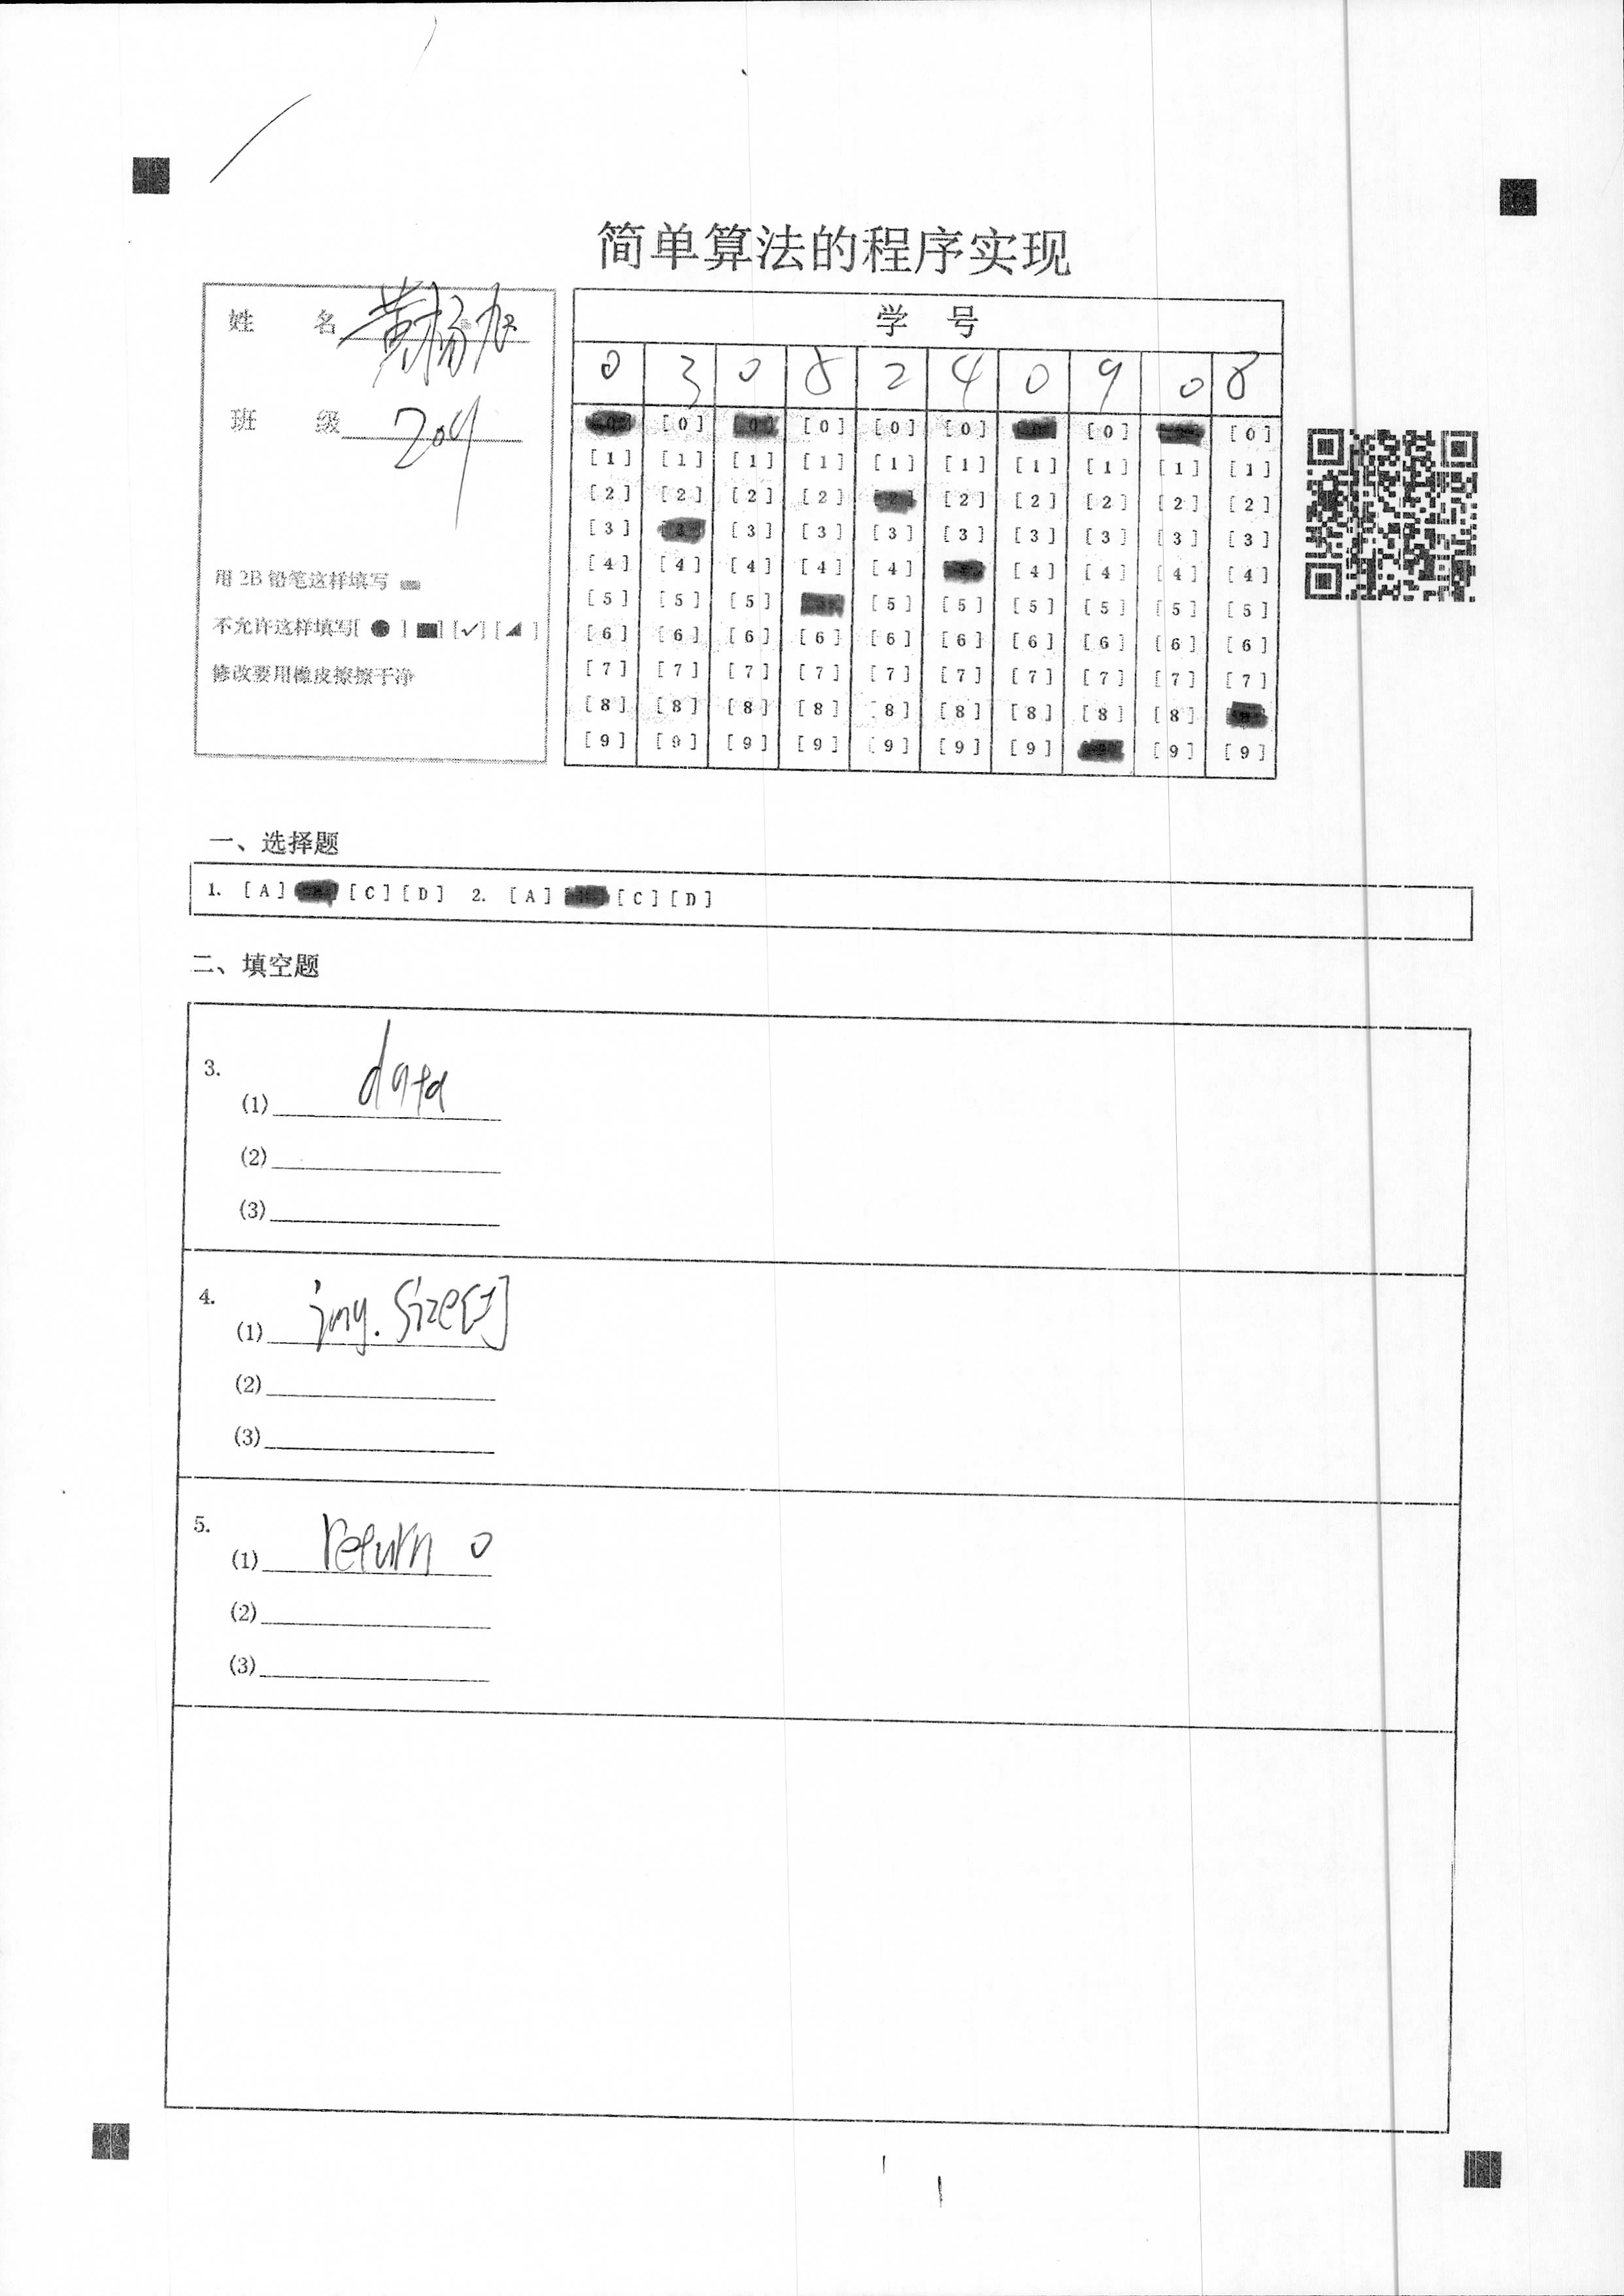 简单算法的程序实现
姓 名 黄杨
班 级 209
用 2B 铅笔这样填写
不允许这样填写[ ● ] [■] [✓] [◢ ]
修改要用橡皮擦擦干净
学 号
0 3 0 8 2 4 0 9 0 8
[0] [0] [0] [0] [0] [0]
[1] [1] [1] [1] [1] [1] [1] [1] [1] [1]
[2] [2] [2] [2] [2] [2] [2] [2] [2]
[3] [3] [3] [3] [3] [3] [3] [3] [3]
[4] [4] [4] [4] [4] [4] [4] [4] [4]
[5] [5] [5] [5] [5] [5] [5] [5] [5]
[6] [6] [6] [6] [6] [6] [6] [6] [6] [6]
[7] [7] [7] [7] [7] [7] [7] [7] [7] [7]
[8] [8] [8] [8] [8] [8] [8] [8] [8]
[9] [9] [9] [9] [9] [9] [9] [9] [9]
一、选择题
1. [A] [C] [D] 2. [A] [C] [D]
二、填空题
3.
(1) data
(2)
(3)
4.
(1) img.size[1]
(2)
(3)
5.
(1) return 0
(2)
(3)